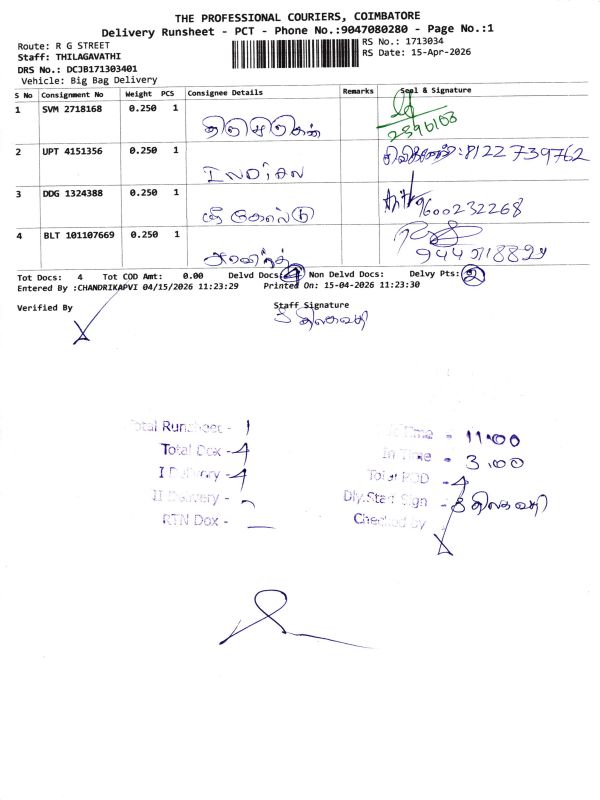 THE PROFESSIONAL COURIERS, COIMBATORE
Delivery Runsheet - PCT - Phone No.:9047080280 - Page No.:1
Route: R G STREET
RS No.: 1713034
Staff: THILAGAVATHI
RS Date: 15-Apr-2026
DRS No.: DCJB171303401
Vehicle: Big Bag Delivery
S No Consignment No Weight PCS Consignee Details Remarks Seal & Signature
1 SVM 2718168 0.250 1
2390103
2 UPT 4151356 0.250 1 : 8122739762
3 DDG 1324388 0.250 1 9600232268
4 BLT 101107669 0.250 1
Tot Docs: 4 Tot COD Amt: 0.00 Delvd Docs: 4 Non Delvd Docs: Delvy Pts: 2
Entered By :CHANDRIKAPVI 04/15/2026 11:23:29 Printed On: 15-04-2026 11:23:30
Verified By Staff Signature
திலகவதி
Total Runsheet - 1
Total Dox - 4
I Delivery - 4
II Delivery -
RTN Dox -
Time - 11.00
In Time - 3.00
Total POD - 4
Dly.Staff Sign - திலகவதி
Checked by